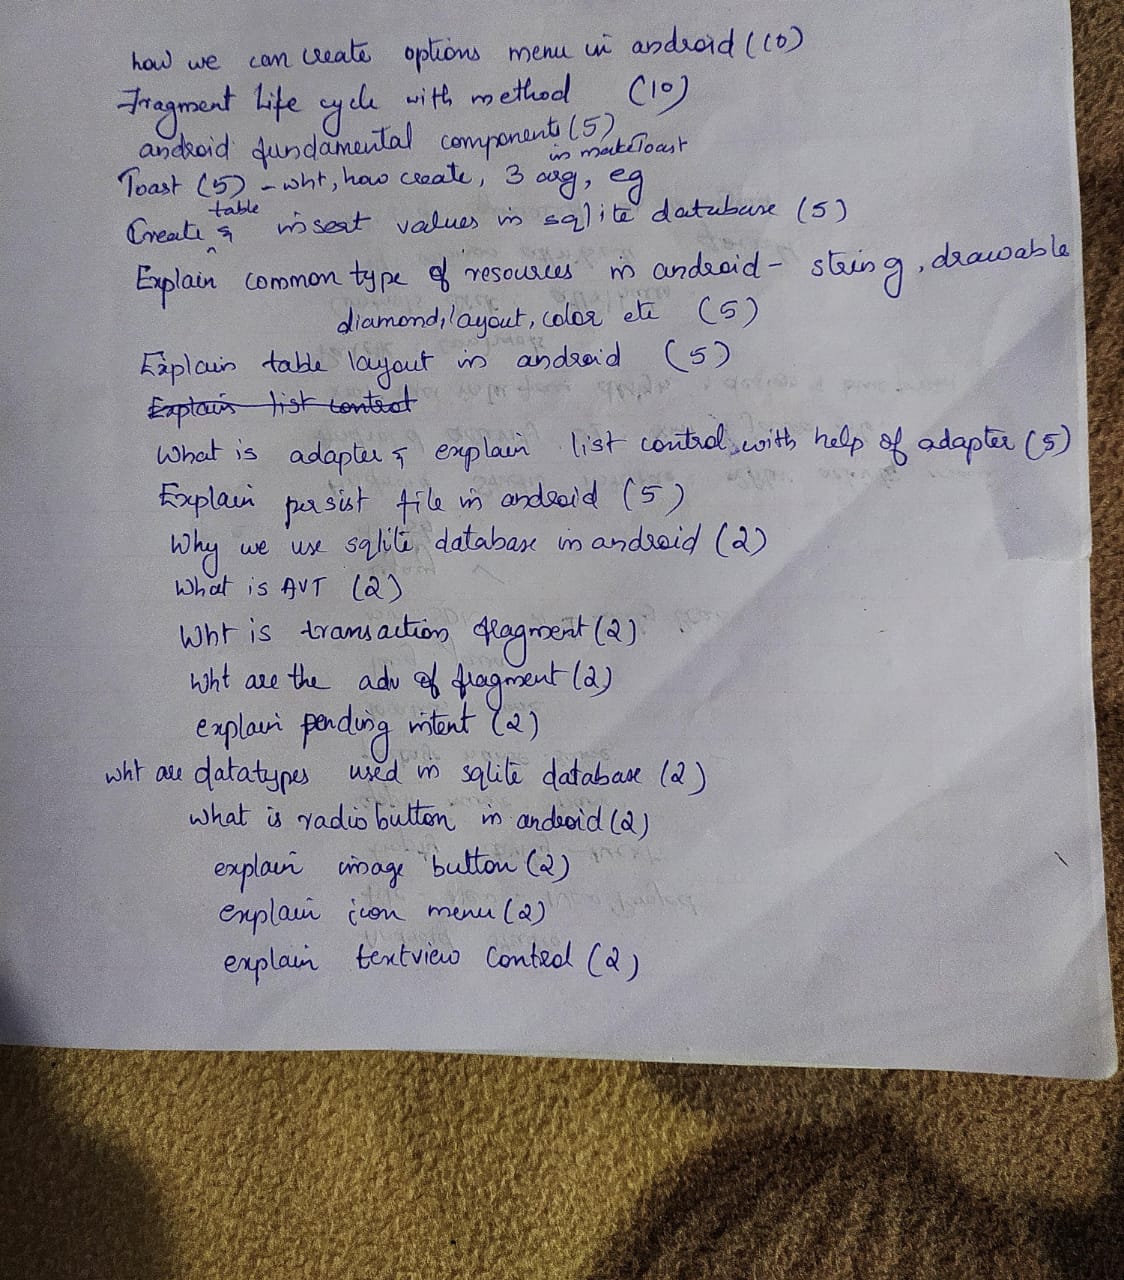 how we can create options menu in android (10)
Fragment Life cycle with method (10)
android fundamental components (5)
in makeToast
Toast (5) - wht, how create, 3 arg, eg
table
Create & insert values in sqlite database (5)
Explain common type of resources in android - string, drawable
diamond, layout, color etc (5)
Explain table layout in android (5)
Explain list control
What is adapter & explain list control with help of adapter (5)
Explain persist file in android (5)
Why we use sqlite database in android (2)
What is AVT (2)
Wht is transaction fragment (2)
Wht are the adv of fragment (2)
explain pending intent (2)
wht are datatypes used in sqlite database (2)
what is radio button in android (2)
explain image button (2)
explain icon menu (2)
explain textview control (2)